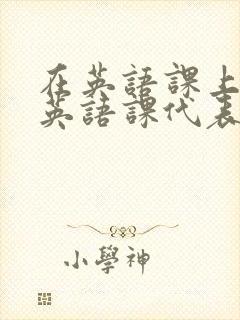 在英語課上
英語課代表
小學神